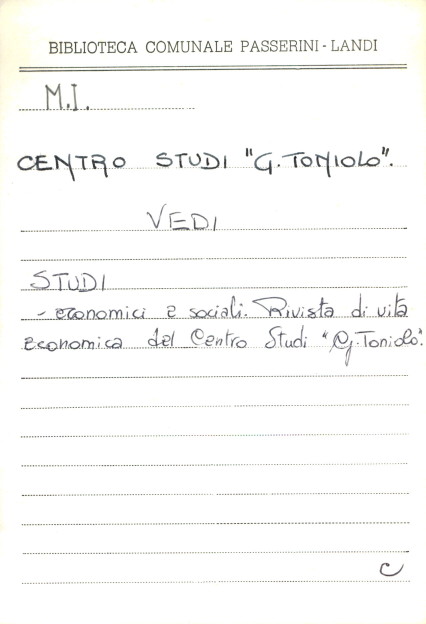 BIBLIOTECA COMUNALE PASSERINI - LANDI
M.I.
CENTRO STUDI "G. TONIOLO".
VEDI
STUDI
- economici e sociali. Rivista di vita
economica del Centro Studi "G. Toniolo".
C